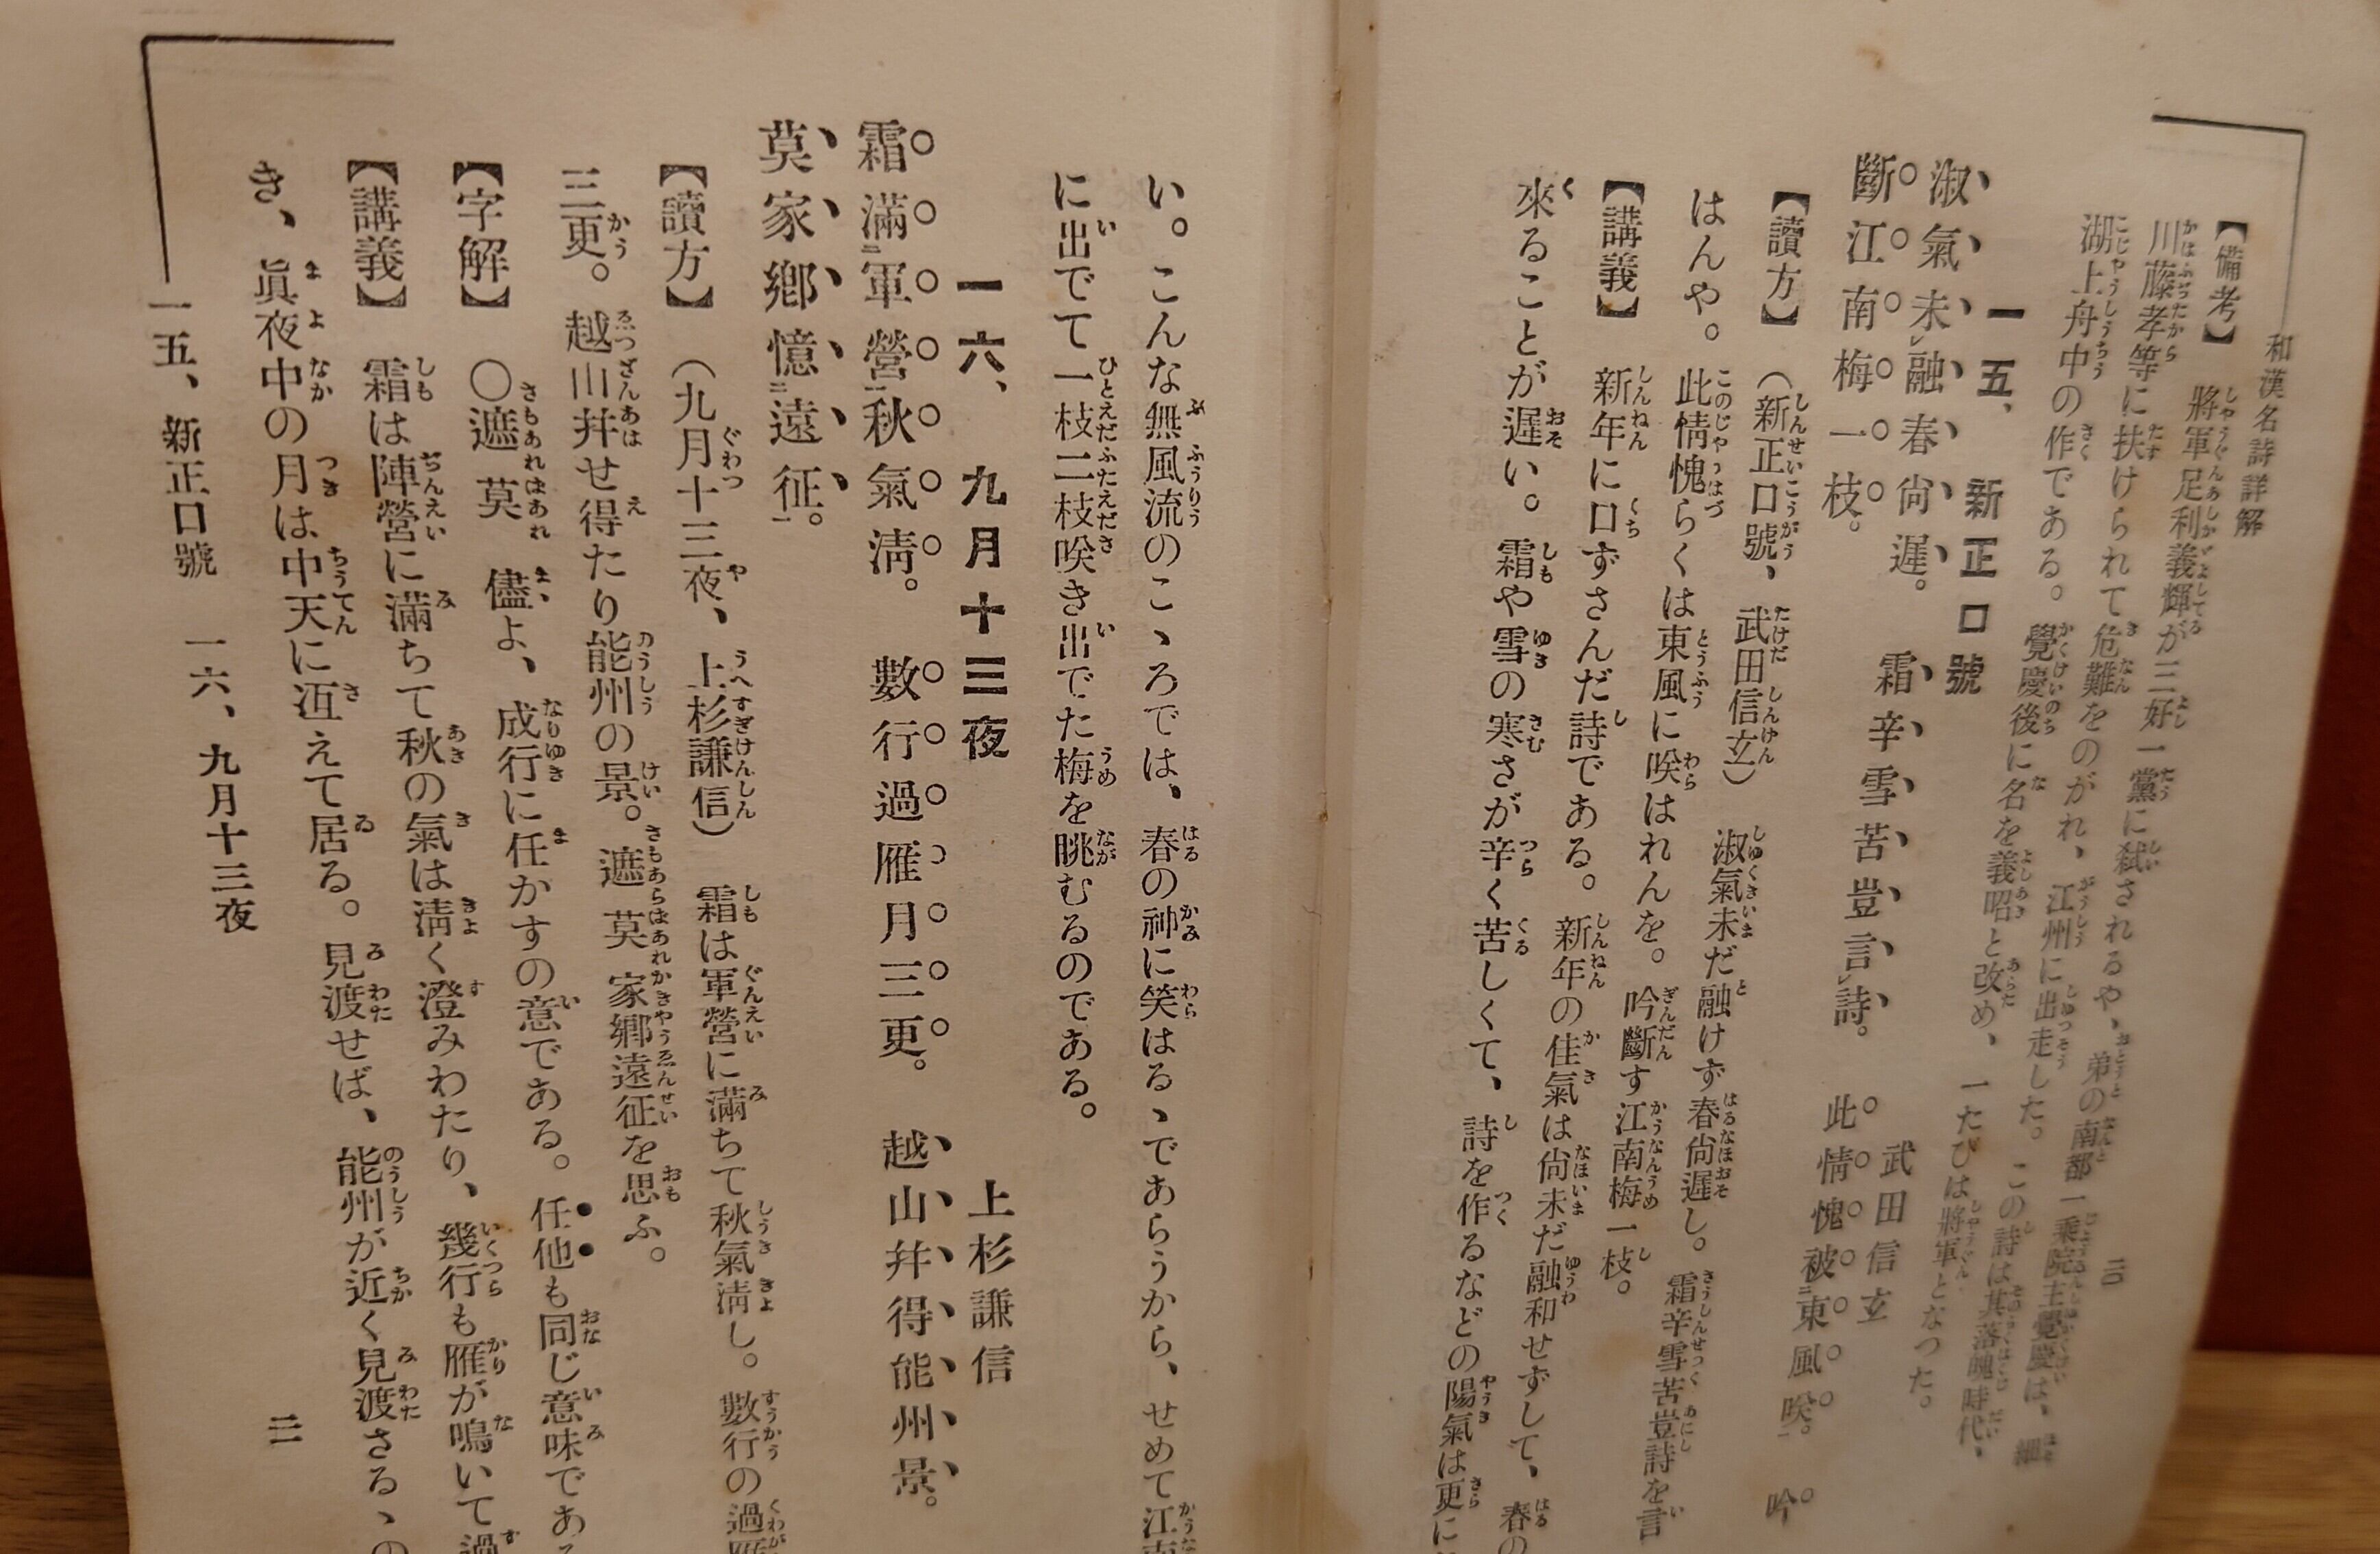 和漢名詩詳解
二〇
【備考】 將軍足利義輝が三好一黨に弑されるや、弟の南都一乘院主覺慶は、細
川藤孝等に扶けられて危難をのがれ、江州に出走した。この詩は其落魄時代、
湖上舟中の作である。覺慶後に名を義昭と改め、一たびは將軍となつた。
一五、 新正口號
武田信玄
淑氣未融春尙遲。 霜辛雪苦豈言詩。 此情愧被東風咲。 吟
斷江南梅一枝。
【讀方】 (新正口號、武田信玄) 淑氣未だ融けず春尙遲し。霜辛雪苦豈詩を言
はんや。此情愧らくは東風に咲はれんを。吟斷す江南梅一枝。
【講義】 新年に口ずさんだ詩である。新年の佳氣は尙未だ融和せずして、春の
來ることが遲い。霜や雪の寒さが辛く苦しくて、詩を作るなどの陽氣は更に
い。こんな無風流のこゝろでは、春の神に笑はるゝであらうから、せめて江南
に出でて一枝二枝咲き出でた梅を眺むるのである。
一六、 九月十三夜
上杉謙信
霜滿二軍營一秋氣淸。 數行過雁月三更。 越山幷得能州景。
莫家鄕憶二遠征一。
【讀方】 (九月十三夜、上杉謙信) 霜は軍營に滿ちて秋氣淸し。數行の過雁
三更。越山幷せ得たり能州の景。遮莫家鄕遠征を思ふ。
【字解】 〇遮莫 儘よ、成行に任かすの意である。任他も同じ意味であ
【講義】 霜は陣營に滿ちて秋の氣は淸く澄みわたり、幾行も雁が鳴いて過
き、眞夜中の月は中天に冱えて居る。見渡せば、能州が近く見渡さるゝの
一五、新正口號 一六、九月十三夜
二一